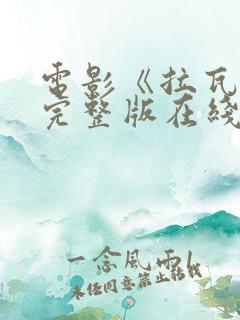 電影《拉瓦
完整版在綫
一念風雨l
未經同意禁止轉載